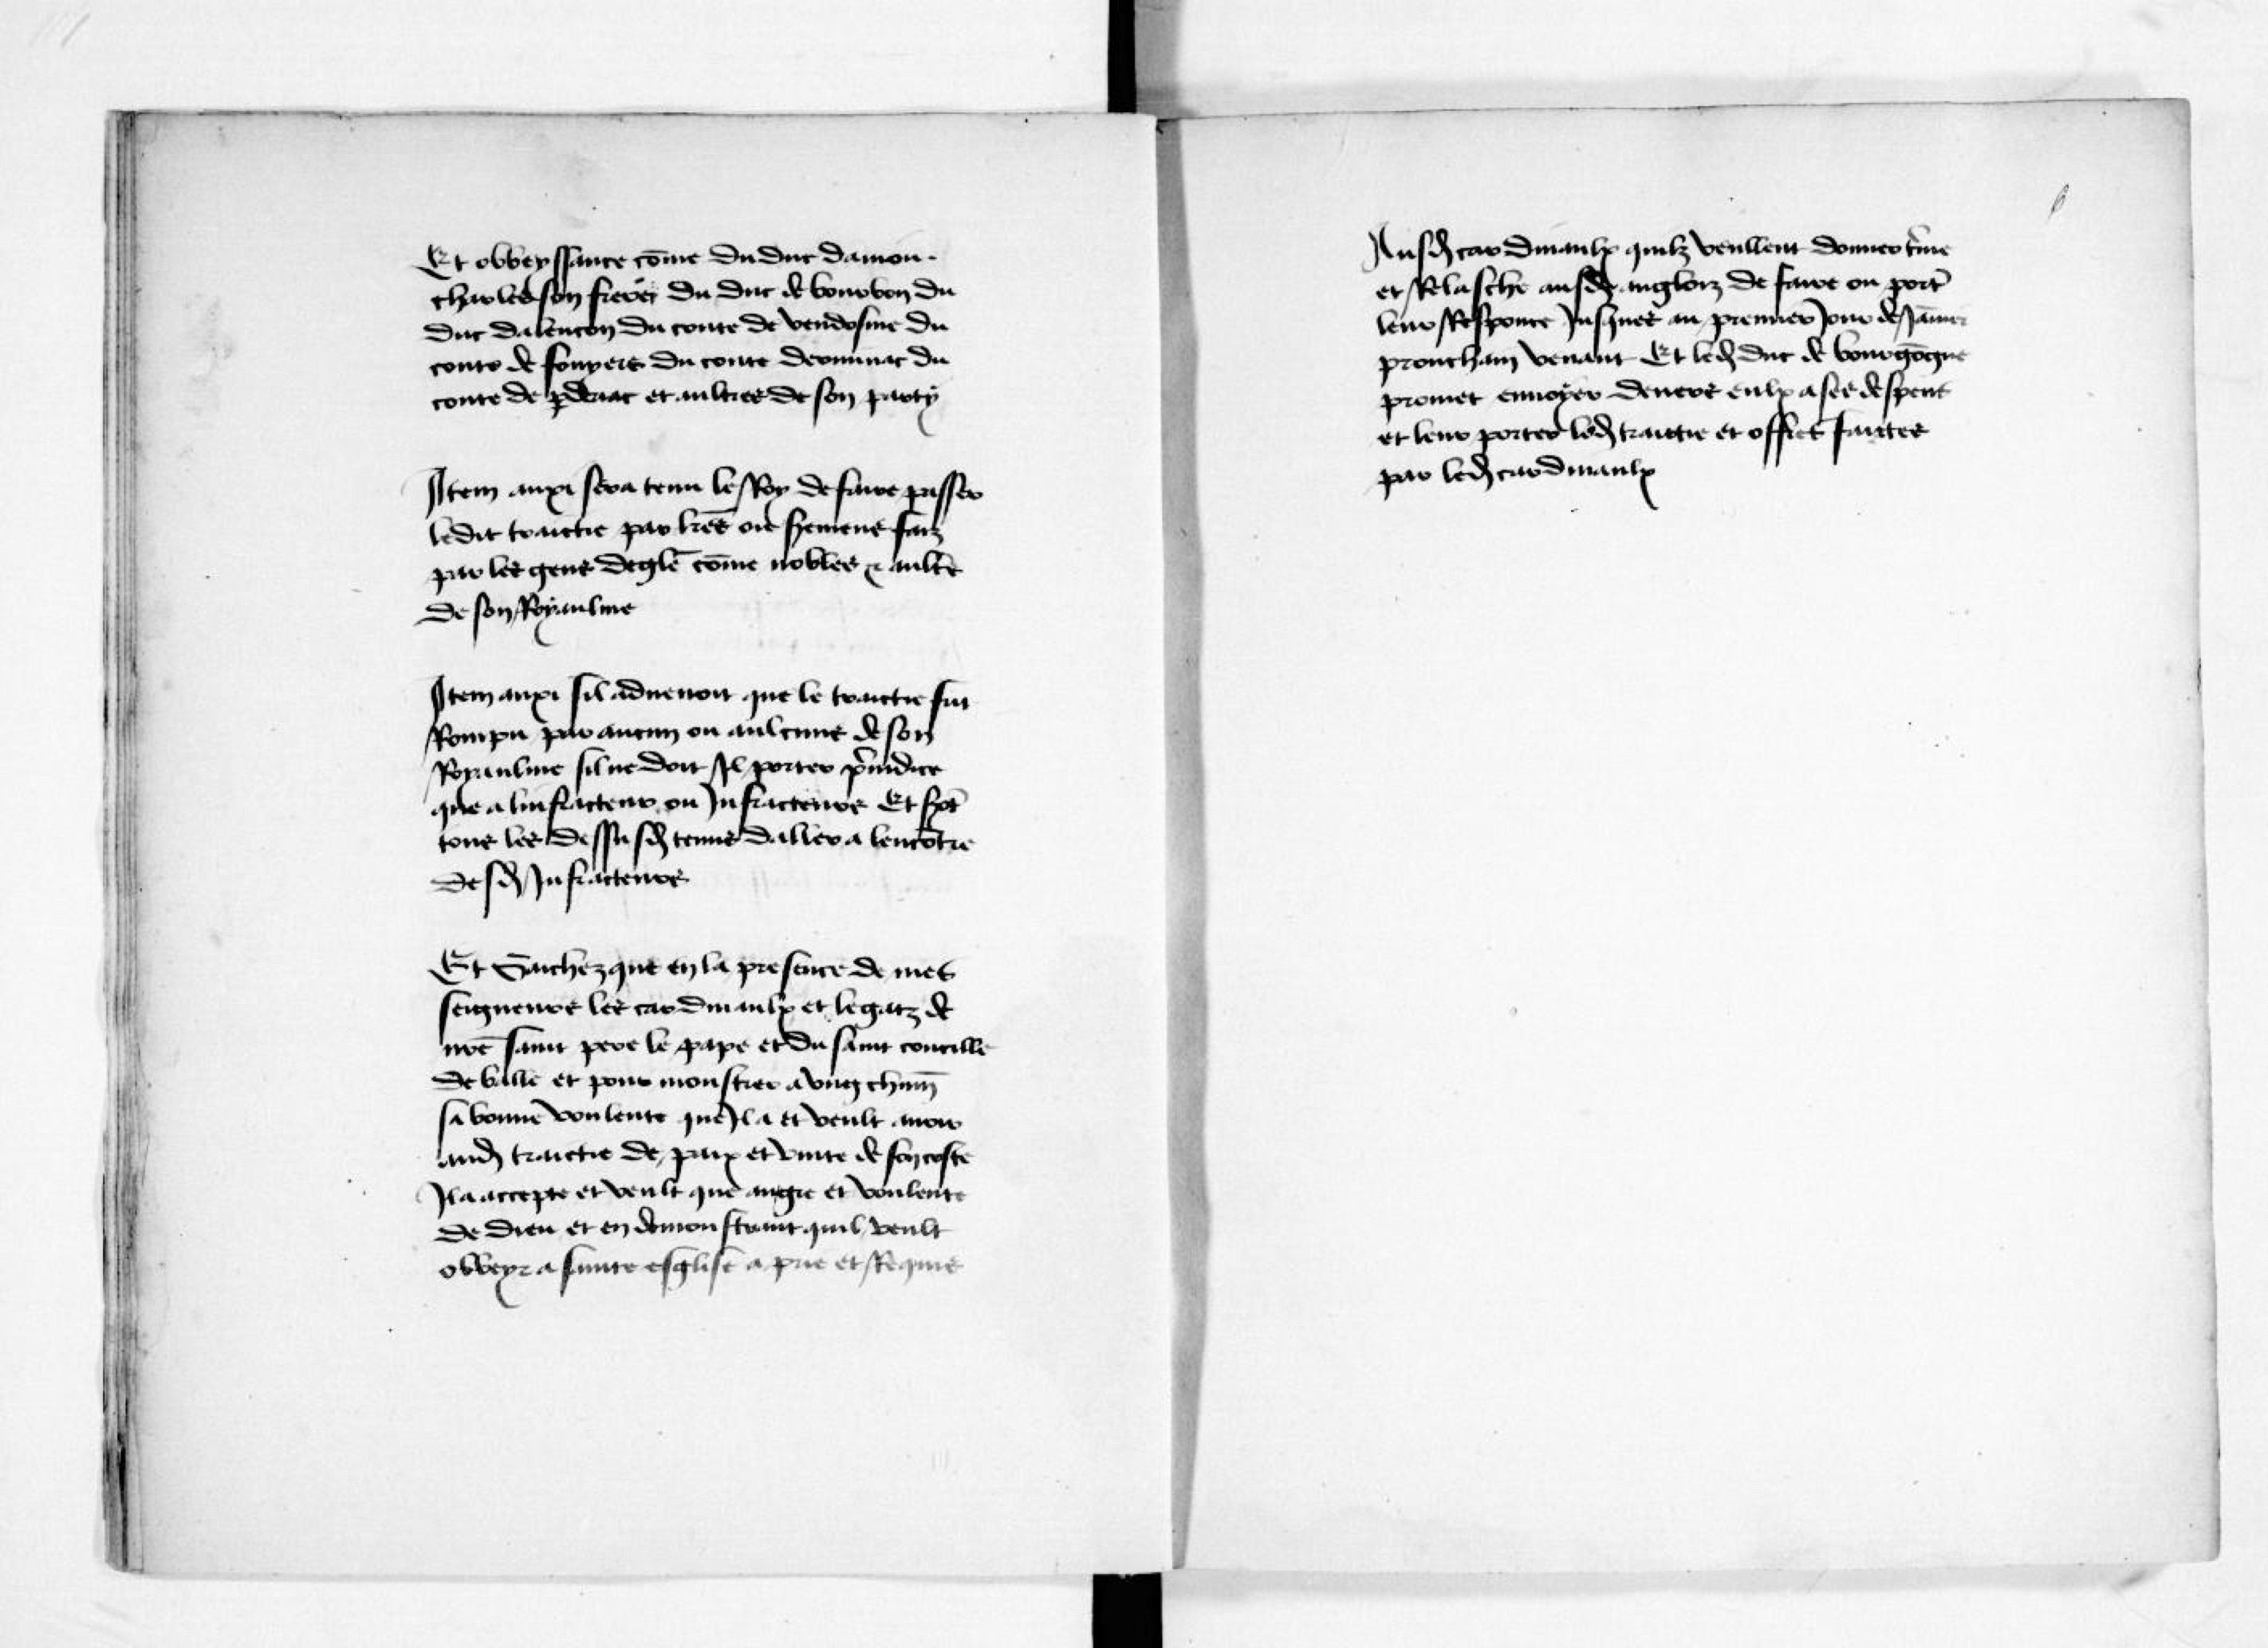 Et obbeyssance cōme du duc damou
charles son frere du duc de bourbon du
duc dalencon du conte de vendosme du
conte de fouyers du conte derminac du
conte de pdriac et aultres de son party
Item auxi sera tenu le Roy de faire passer
ledit traictie par lr̄es ou semens faiz
par les gens degle cōme nobles & ault̄s
de son Royaulme
Item auxi sil aduenoit que le traictie fut
Rompu par aucun ou aulcuns de son
Royaulme sil ne doit Il porter p̄iudice
que a linfracteur ou Infracteurs Et sōt
tous les dessusd tenus daller a lencōtre
desd Infracteurs
Et Saichez que en la presence de mes
seigneurs les cardinaulx et legatz de
nr̄e saint pere le pape et du saint concille
de balle et pour monstrer a vng chūn
sa bonne voulente que Il a et veult auoir
aud traictie de paix et vnite de son coste
Il a accepte et veult que augre et voulente
de dieu et en demonstrant quil veult
obbeyr a saincte esglise a prie et Requis
6
Ausd cardinaulx quilz veullent donner t̄me
et Relasche ausd angloiz de faire ou port̄
leur Responce Jusques au premier Jour de Janvier
prouchain venant Et led duc de bourgōgne
promet enuoyer deuers eulx a ses despens
et leur porter led traictie et offres faictes
par led cardinaulx